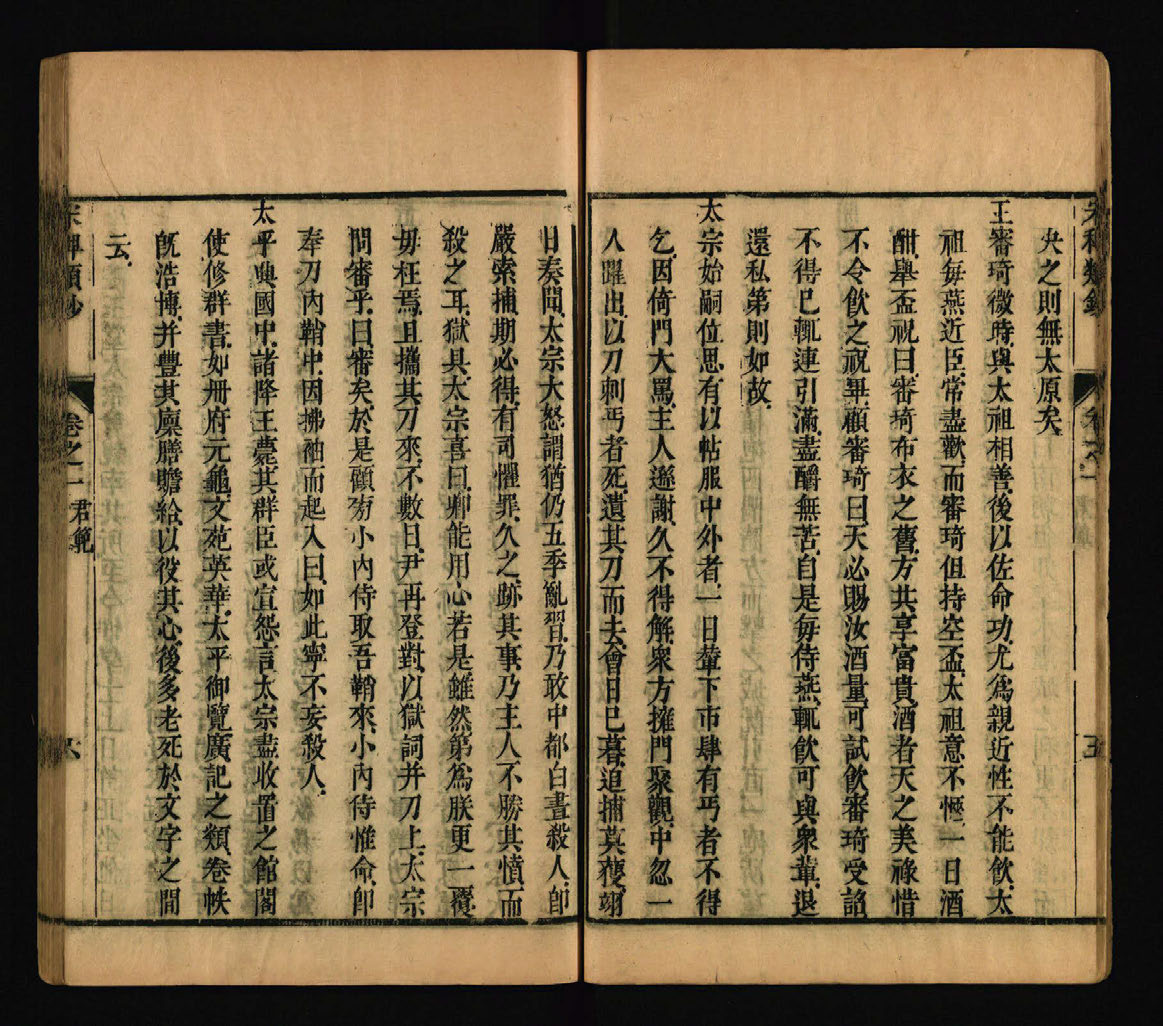 宋稗類鈔 卷之一 五
央之則無太原矣
王審琦微時與太祖相善後以佐命功尤爲親近性不能飲太
祖每燕近臣常盡歡而審琦但持空盃太祖意不愜一日酒
酣舉盃祝曰審琦布衣之舊方共享富貴酒者天之美祿惜
不令飲之祝畢顧審琦曰天必賜汝酒量可試飲審琦受詔
不得已輒連引滿盡釂無苦自是每侍燕輒飲可與衆輩退
還私第則如故
太宗始嗣位思有以帖服中外者一日輦下市肆有丐者不得
乞因倚門大罵主人遜謝久不得解衆方擁門聚觀中忽一
人躍出以刀刺丐者死遺其刀而去會日已暮追捕莫獲翊
日奏聞太宗大怒謂猶仍五季亂習乃敢中都白晝殺人卽
嚴索捕期必得有司懼罪久之跡其事乃主人不勝其憤而
殺之耳獄具太宗喜曰卿能用心若是雖然第爲朕更一覆
毋枉焉且攜其刀來不數日尹再登對以獄詞并刀上太宗
問審乎曰審矣於是顧旁小內侍取吾鞘來小內侍惟命卽
奉刀內鞘中因拂袖而起入曰如此寧不妄殺人
太平興國中諸降王薨其群臣或宣怨言太宗盡收置之館閣
使修群書如冊府元龜文苑英華太平御覽廣記之類卷帙
旣浩博并豐其廩膳贍給以役其心後多老死於文字之間
云
宋稗類鈔 卷之一 君範 六